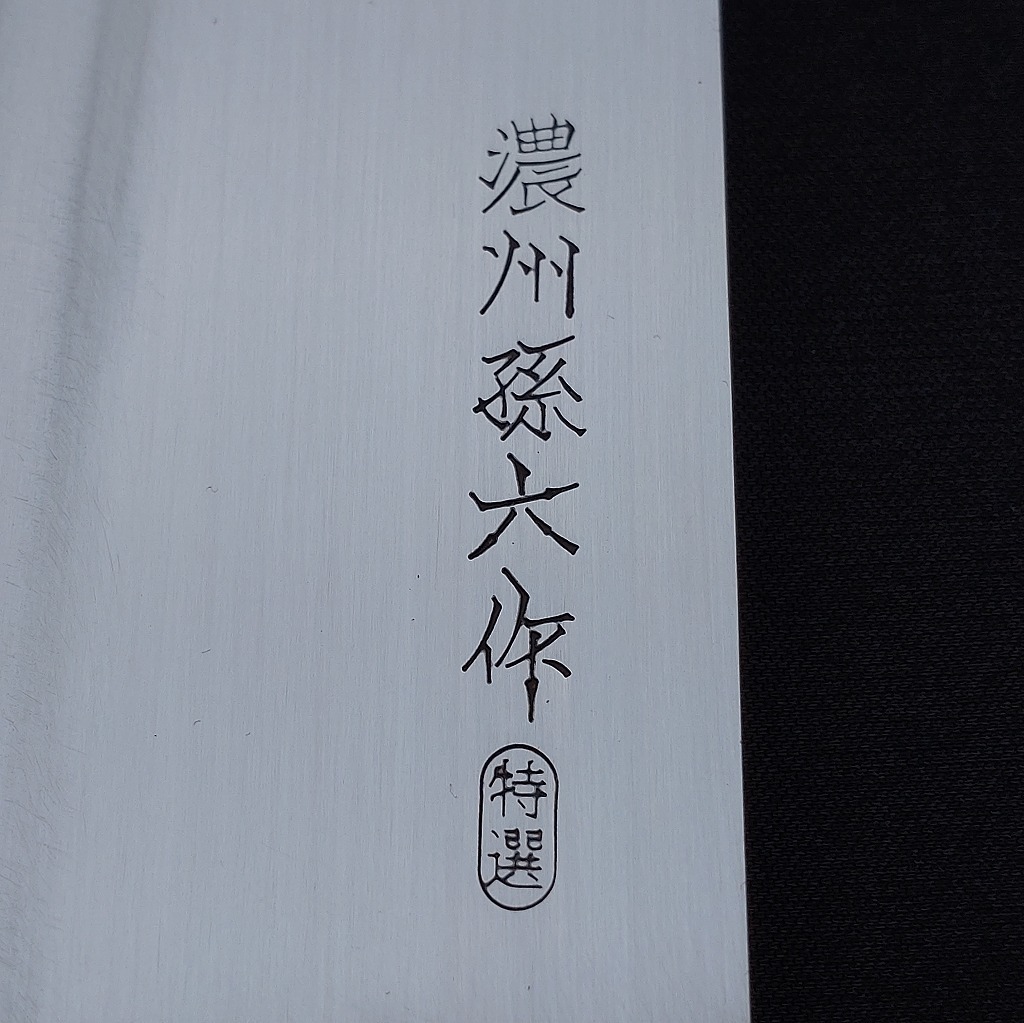 濃州孫六作
特選